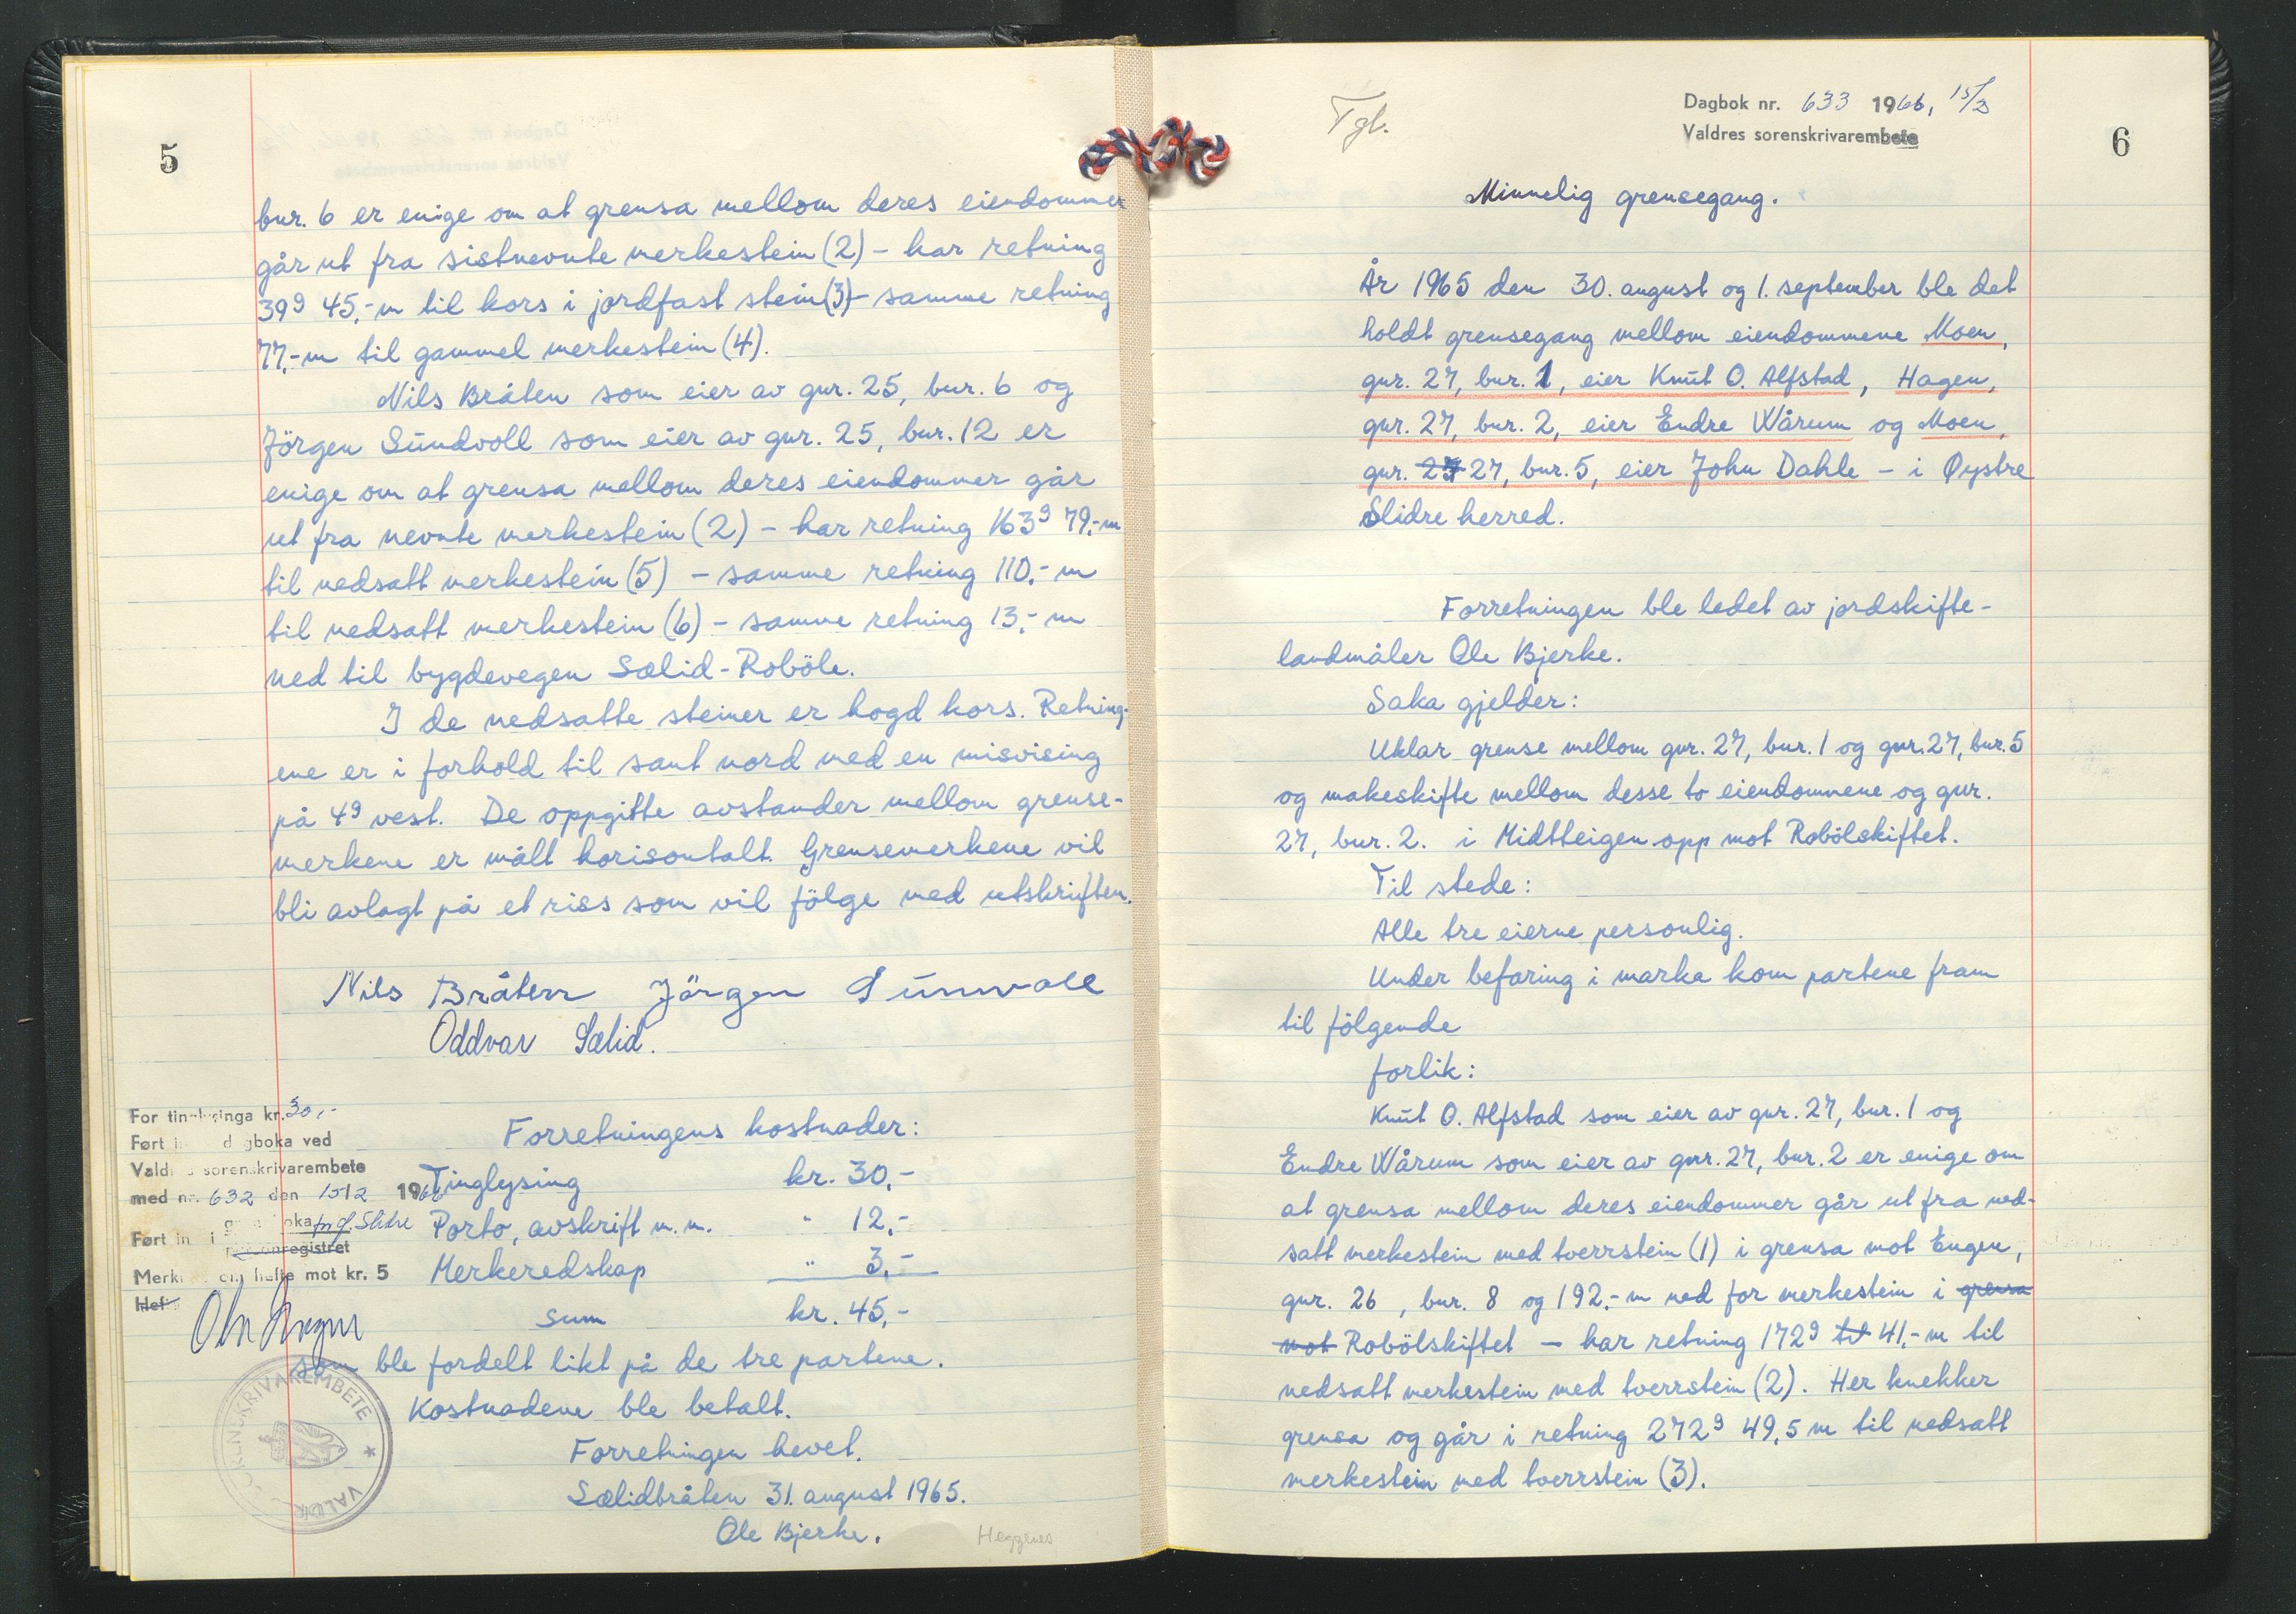 5
bnr. 6 er enige om at grensa mellom deres eiendommer
går ut fra sistnevnte merkestein (2) – har retning
39g 45,-m til kors i jordfast stein (3) – samme retning
77,-m til gammel merkestein (4).
Nils Bråten som eier av gnr. 25, bnr. 6 og
Jörgen Sundvoll som eier av gnr. 25, bnr. 12 er
enige om at grensa mellom deres eiendommer går
ut fra nevnte merkestein (2) – har retning 163g 79,-m
til nedsatt merkestein (5) – samme retning 110,-m
til nedsatt merkestein (6) – samme retning 13,-m
ned til bygdevegen Sælid-Roböle.
I de nedsatte steiner er hogd kors. Retning-
ene er i forhold til sant nord med en misvising
på 4g vest. De oppgitte avstander mellom grense-
merkene er målt horisontalt. Grensemerkene vil
bli avlagt på et riss som vil fölge med utskriften.
Nils Bråten Jörgen Sunvoll
Oddvar Sælid.
For tinglysinga kr. 30,-
Ført i dagboka ved
Valdres sorenskrivarembete
med nr. 632 den 15/2 1966
Ført inn i
personregistret
Merk hefte mot kr. 5
Forretningens kostnader:
Tinglysing kr. 30,-
Porto, avskrift m.m. " 12,-
Merkeredskap " 3,-
Sum kr. 45,-
som ble fordelt likt på de tre partene.
Kostnadene ble betalt.
Forretningen hevet.
Sælidbråten 31. august 1965.
Ole Bjerke.
Heggenes
SORENSKRIVAREMBETE * VALDRES
Tgl.
Dagbok nr. 633 1966, 15/2
Valdres sorenskrivarembete
6
Minnelig grensegang.
År 1965 den 30. august og 1. september ble det
holdt grensegang mellom eiendommene Moen,
gnr. 27, bnr. 1, eier Knut O. Alfstad, Hagen,
gnr. 27, bnr. 2, eier Endre Wårum og Moen,
gnr. 27 27, bnr. 5, eier John Dahle – i Øystre
Slidre herred.
Forretningen ble ledet av jordskifte-
landmåler Ole Bjerke.
Saka gjelder:
Uklar grense mellom gnr. 27, bnr. 1 og gnr. 27, bnr. 5
og makeskifte mellom desse to eiendommene og gnr.
27, bnr. 2. i Midtteigen opp mot Robölskiftet.
Til stede:
Alle tre eierne personlig.
Under befaring i marka kom partene fram
til fölgende
forlik:
Knut O. Alfstad som eier av gnr. 27, bnr. 1 og
Endre Wårum som eier av gnr. 27, bnr. 2 er enige om
at grensa mellom deres eiendommer går ut fra ned-
satt merkestein med tverrstein (1) i grensa mot Engen,
gnr. 26, bnr. 8 og 192,-m ned for merkestein i grensa
mot Robölskiftet – har retning 172g til 41,-m til
nedsatt merkestein med tverrstein (2). Her knekker
grensa og går i retning 272g 49,5 m til nedsatt
merkestein med tverrstein (3).